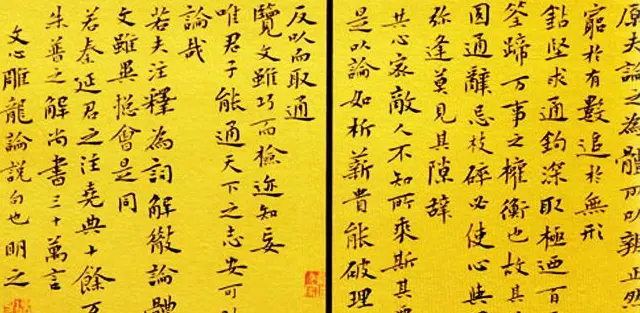 原夫論之為體所以辨正然
窮於有數追於無形
鉆堅求通鉤深取極迺百
筌蹄万事之權衡也故其
因通辭忌枝碎必使心與
弥逢莫見其隙辭
共心密敵人不知所乘斯其
是以論如析薪貴能破理
反以而取通
覽文雖巧而檢迹知妄
唯君子能通天下之志安可
論哉
若夫注釋為詞解徹論體
文雖異摠會是同
若秦延君之注堯典十餘万
朱善之解尚書三十萬言
文心雕龍論說句也 明之